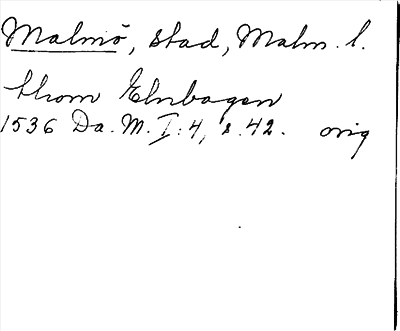 Malmö, stad, Malm. l.
thom Elnbagen
1536 Da. M. I: 4, s. 42. orig